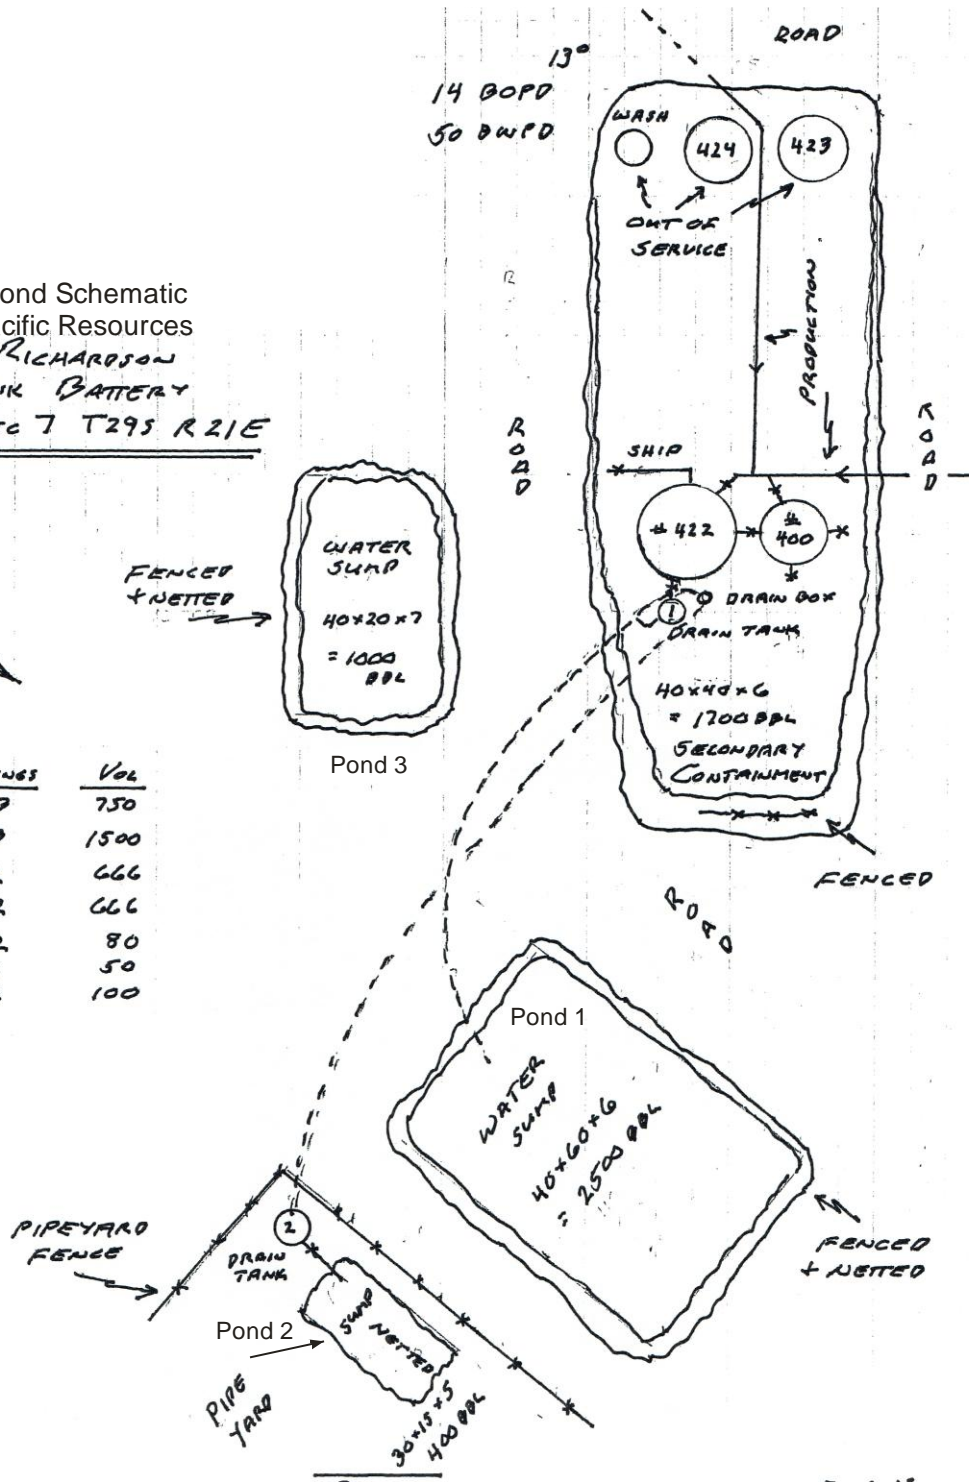 ROAD
13°
14 BOPD
50 BWPD
WASH
424
423
OUT OF
SERVICE
PRODUCTION
ond Schematic
cific Resources
RICHARDSON
NK BATTERY
EC 7 T29S R21E
ROAD
ROAD
SHIP
#422
#
400
DRAIN BOX
1
DRAIN TANK
40×40×6
= 1700 BBL
SECONDARY
CONTAINMENT
FENCED
WATER
SUMP
40×20×7
= 1000
BBL
FENCED
+ NETTED
Pond 3
NGS VOL
750
1500
666
666
80
50
100
ROAD
Pond 1
WATER
SUMP
40×60×6
= 2500 BBL
FENCED
+ NETTED
PIPEYARD
FENCE
2
DRAIN
TANK
Pond 2
SUMP
NETTED
30×15×5
400 BBL
PIPE
YARD